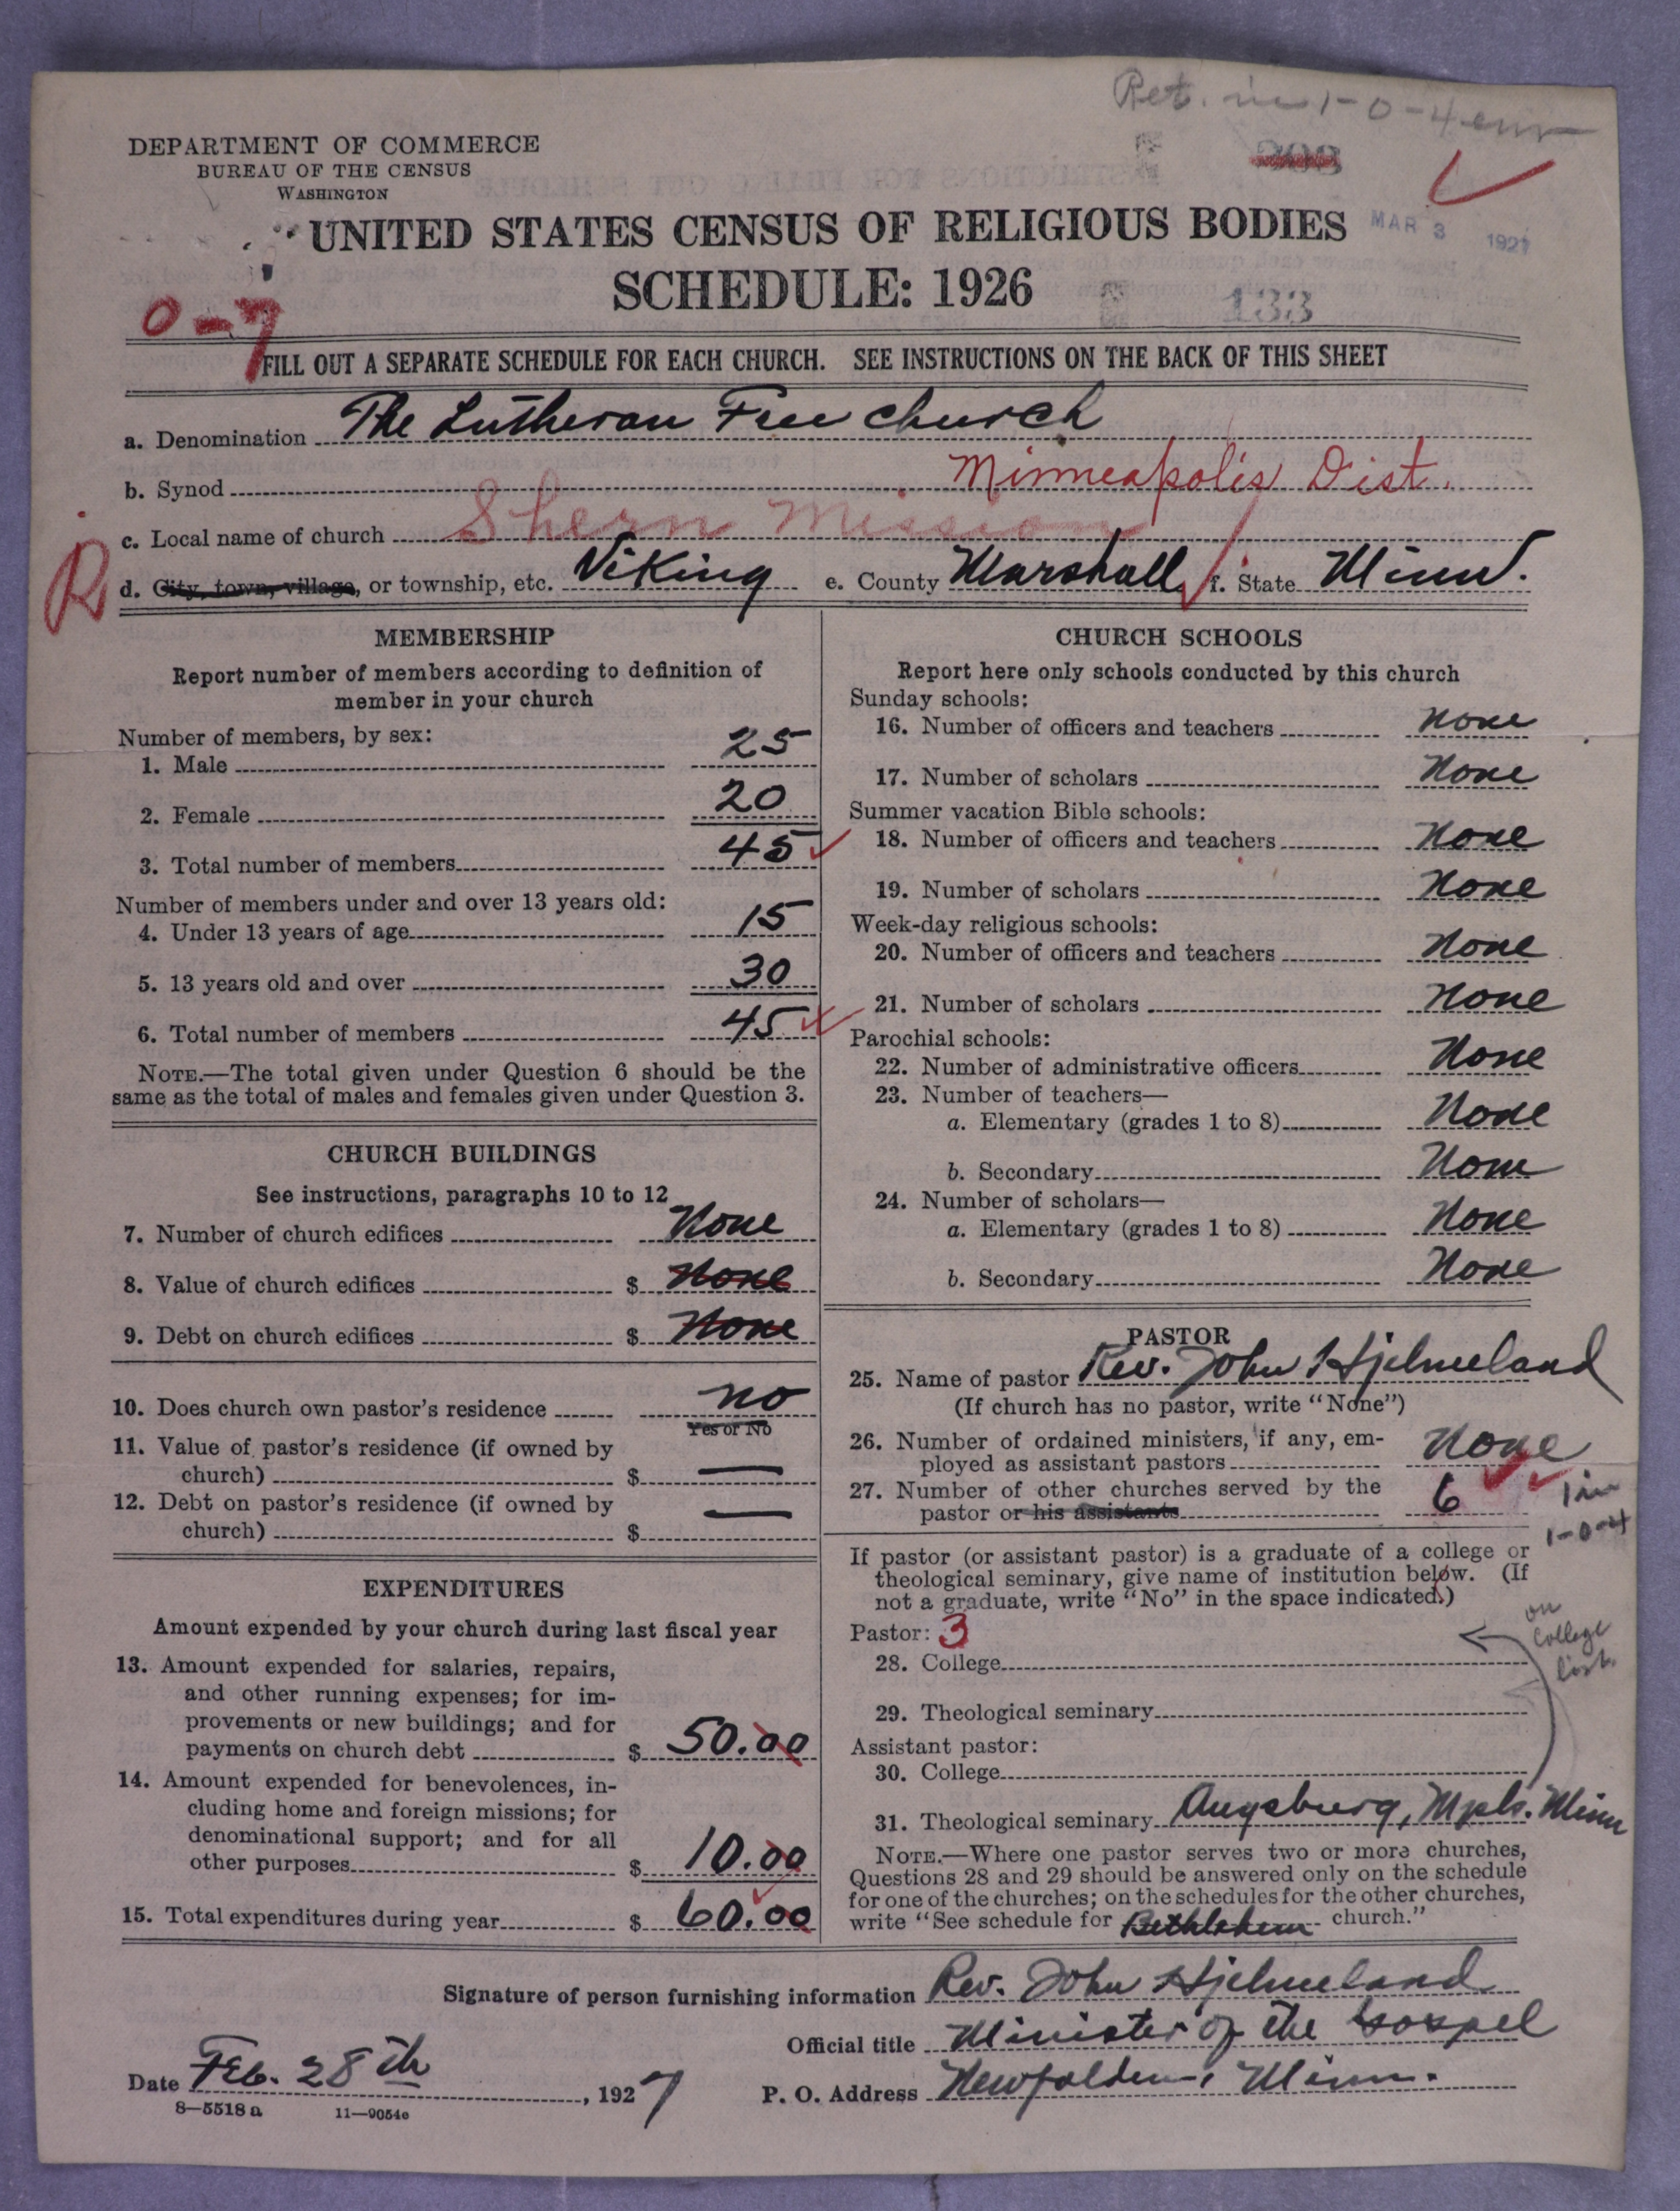 Ret. in 1-0-4
DEPARTMENT OF COMMERCE
BUREAU OF THE CENSUS
WASHINGTON
UNITED STATES CENSUS OF RELIGIOUS BODIES
MAR 3 1927
SCHEDULE: 1926
133
0-7
FILL OUT A SEPARATE SCHEDULE FOR EACH CHURCH. SEE INSTRUCTIONS ON THE BACK OF THIS SHEET
a. Denomination The Lutheran Free church
b. Synod Minneapolis Dist.
c. Local name of church Shern Mission
R
d. City, town, village, or township, etc. Viking e. County Marshall f. State Minn.
MEMBERSHIP
Report number of members according to definition of
member in your church
Number of members, by sex:
1. Male 25
2. Female 20
3. Total number of members 45
Number of members under and over 13 years old:
4. Under 13 years of age 15
5. 13 years old and over 30
6. Total number of members 45
NOTE.—The total given under Question 6 should be the
same as the total of males and females given under Question 3.
CHURCH BUILDINGS
See instructions, paragraphs 10 to 12
7. Number of church edifices None
8. Value of church edifices $ None
9. Debt on church edifices $ None
10. Does church own pastor's residence no
Yes or No
11. Value of pastor's residence (if owned by
church) $ —
12. Debt on pastor's residence (if owned by
church) $ —
EXPENDITURES
Amount expended by your church during last fiscal year
13. Amount expended for salaries, repairs,
and other running expenses; for im-
provements or new buildings; and for
payments on church debt $ 50.00
14. Amount expended for benevolences, in-
cluding home and foreign missions; for
denominational support; and for all
other purposes $ 10.00
15. Total expenditures during year $ 60.00
CHURCH SCHOOLS
Report here only schools conducted by this church
Sunday schools:
16. Number of officers and teachers None
17. Number of scholars None
Summer vacation Bible schools:
18. Number of officers and teachers None
19. Number of scholars None
Week-day religious schools:
20. Number of officers and teachers None
21. Number of scholars None
Parochial schools:
22. Number of administrative officers None
23. Number of teachers—
a. Elementary (grades 1 to 8) None
b. Secondary None
24. Number of scholars—
a. Elementary (grades 1 to 8) None
b. Secondary None
PASTOR
25. Name of pastor Rev. John Hjelmeland
(If church has no pastor, write "None")
26. Number of ordained ministers, if any, em-
ployed as assistant pastors None
27. Number of other churches served by the
pastor or his assistants 6
1 in
1-0-4
If pastor (or assistant pastor) is a graduate of a college or
theological seminary, give name of institution below. (If
not a graduate, write "No" in the space indicated.)
Pastor: 3
on
College
list
28. College
29. Theological seminary
Assistant pastor:
30. College
31. Theological seminary Augsburg, Mpls. Minn
NOTE.—Where one pastor serves two or more churches,
Questions 28 and 29 should be answered only on the schedule
for one of the churches; on the schedules for the other churches,
write "See schedule for Bethlehem church."
Signature of person furnishing information Rev. John Hjelmeland
Official title Minister of the Gospel
Date Feb. 28th, 1927
P. O. Address Newfolden, Minn.
8—5518 a 11—9054c